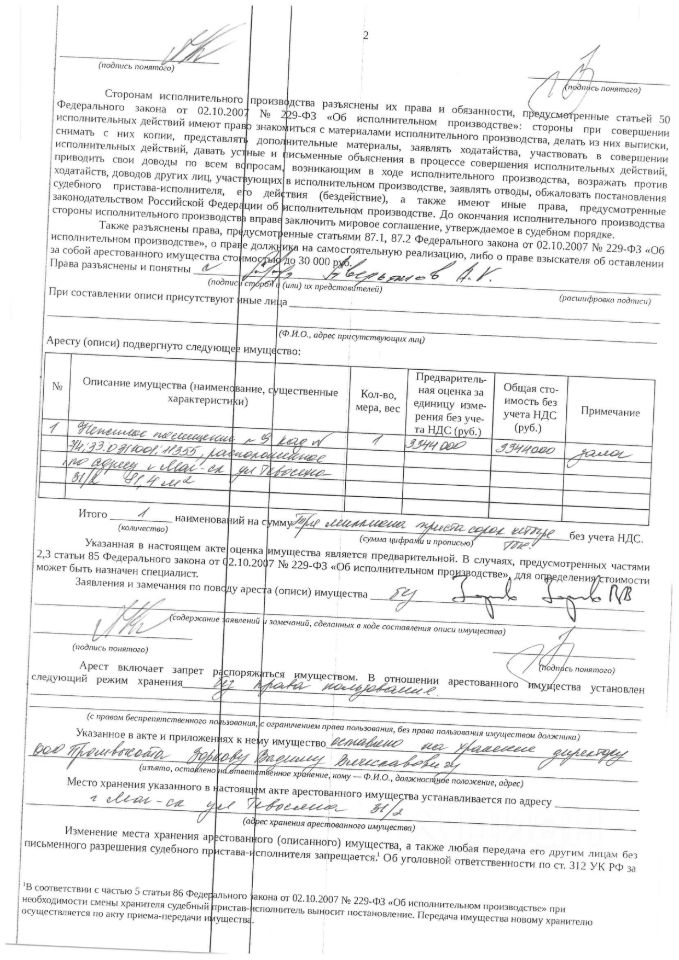 2
(подпись понятого)
(подпись понятого)
Сторонам исполнительного производства разъяснены их права и обязанности, предусмотренные статьей 50
Федерального закона от 02.10.2007 № 229-ФЗ «Об исполнительном производстве»: стороны при совершении
исполнительных действий имеют право знакомиться с материалами исполнительного производства, делать из них выписки,
снимать с них копии, представлять дополнительные материалы, заявлять ходатайства, участвовать в совершении
исполнительных действий, давать устные и письменные объяснения в процессе совершения исполнительных действий,
приводить свои доводы по всем вопросам, возникающим в ходе исполнительного производства, возражать против
ходатайств, доводов других лиц, участвующих в исполнительном производстве, заявлять отводы, обжаловать постановления
судебного пристава-исполнителя, его действия (бездействие), а также имеют иные права, предусмотренные
законодательством Российской Федерации об исполнительном производстве. До окончания исполнительного производства
стороны исполнительного производства вправе заключить мировое соглашение, утверждаемое в судебном порядке.
Также разъяснены права, предусмотренные статьями 87.1, 87.2 Федерального закона от 02.10.2007 № 229-ФЗ «Об
исполнительном производстве», о праве должника на самостоятельную реализацию, либо о праве взыскателя об оставлении
за собой арестованного имущества стоимостью до 30 000 руб.
Права разъяснены и понятны
(подписи сторон и (или) их представителей)
(расшифровка подписи)
При составлении описи присутствуют иные лица
(Ф.И.О., адрес присутствующих лиц)
Аресту (описи) подвергнуто следующее имущество:
№
Описание имущества (наименование, существенные характеристики)
Кол-во, мера, вес
Предваритель-
ная оценка за
единицу изме-
рения без уче-
та НДС (руб.)
Общая сто-
имость без
учета НДС
(руб.)
Примечание
1 Нежилое помещение №9 кад N 1 3344000 3344000 залог
74:33:0211001:11355, расположенное
по адресу г Маг-ск ул Тевосяна
31/2 81,4 м2
Итого 1 наименований на сумму Три миллиона триста сорок четыре без учета НДС.
(количество)
(сумма цифрами и прописью)
Указанная в настоящем акте оценка имущества является предварительной. В случаях, предусмотренных частями
2,3 статьи 85 Федерального закона от 02.10.2007 № 229-ФЗ «Об исполнительном производстве», для определения стоимости
может быть назначен специалист.
Заявления и замечания по поводу ареста (описи) имущества
(содержание заявлений и замечаний, сделанных в ходе составления описи имущества)
(подпись понятого)
(подпись понятого)
Арест включает запрет распоряжаться имуществом. В отношении арестованного имущества установлен
следующий режим хранения без права пользования
(с правом беспрепятственного пользования, с ограничением права пользования, без права пользования имуществом должника)
Указанное в акте и приложениях к нему имущество оставлено на хранение директору
ООО Промвысота Зоркову Вадиму Вячеславовичу
(изъято, оставлено на ответственное хранение, кому — Ф.И.О., должностное положение, адрес)
Место хранения указанного в настоящем акте арестованного имущества устанавливается по адресу
г Маг-ск ул Тевосяна 31/2
(адрес хранения арестованного имущества)
Изменение места хранения арестованного (описанного) имущества, а также любая передача его другим лицам без
письменного разрешения судебного пристава-исполнителя запрещается.¹ Об уголовной ответственности по ст. 312 УК РФ за
¹В соответствии с частью 5 статьи 86 Федерального закона от 02.10.2007 № 229-ФЗ «Об исполнительном производстве» при
необходимости смены хранителя судебный пристав-исполнитель выносит постановление. Передача имущества новому хранителю
осуществляется по акту приема-передачи имущества.